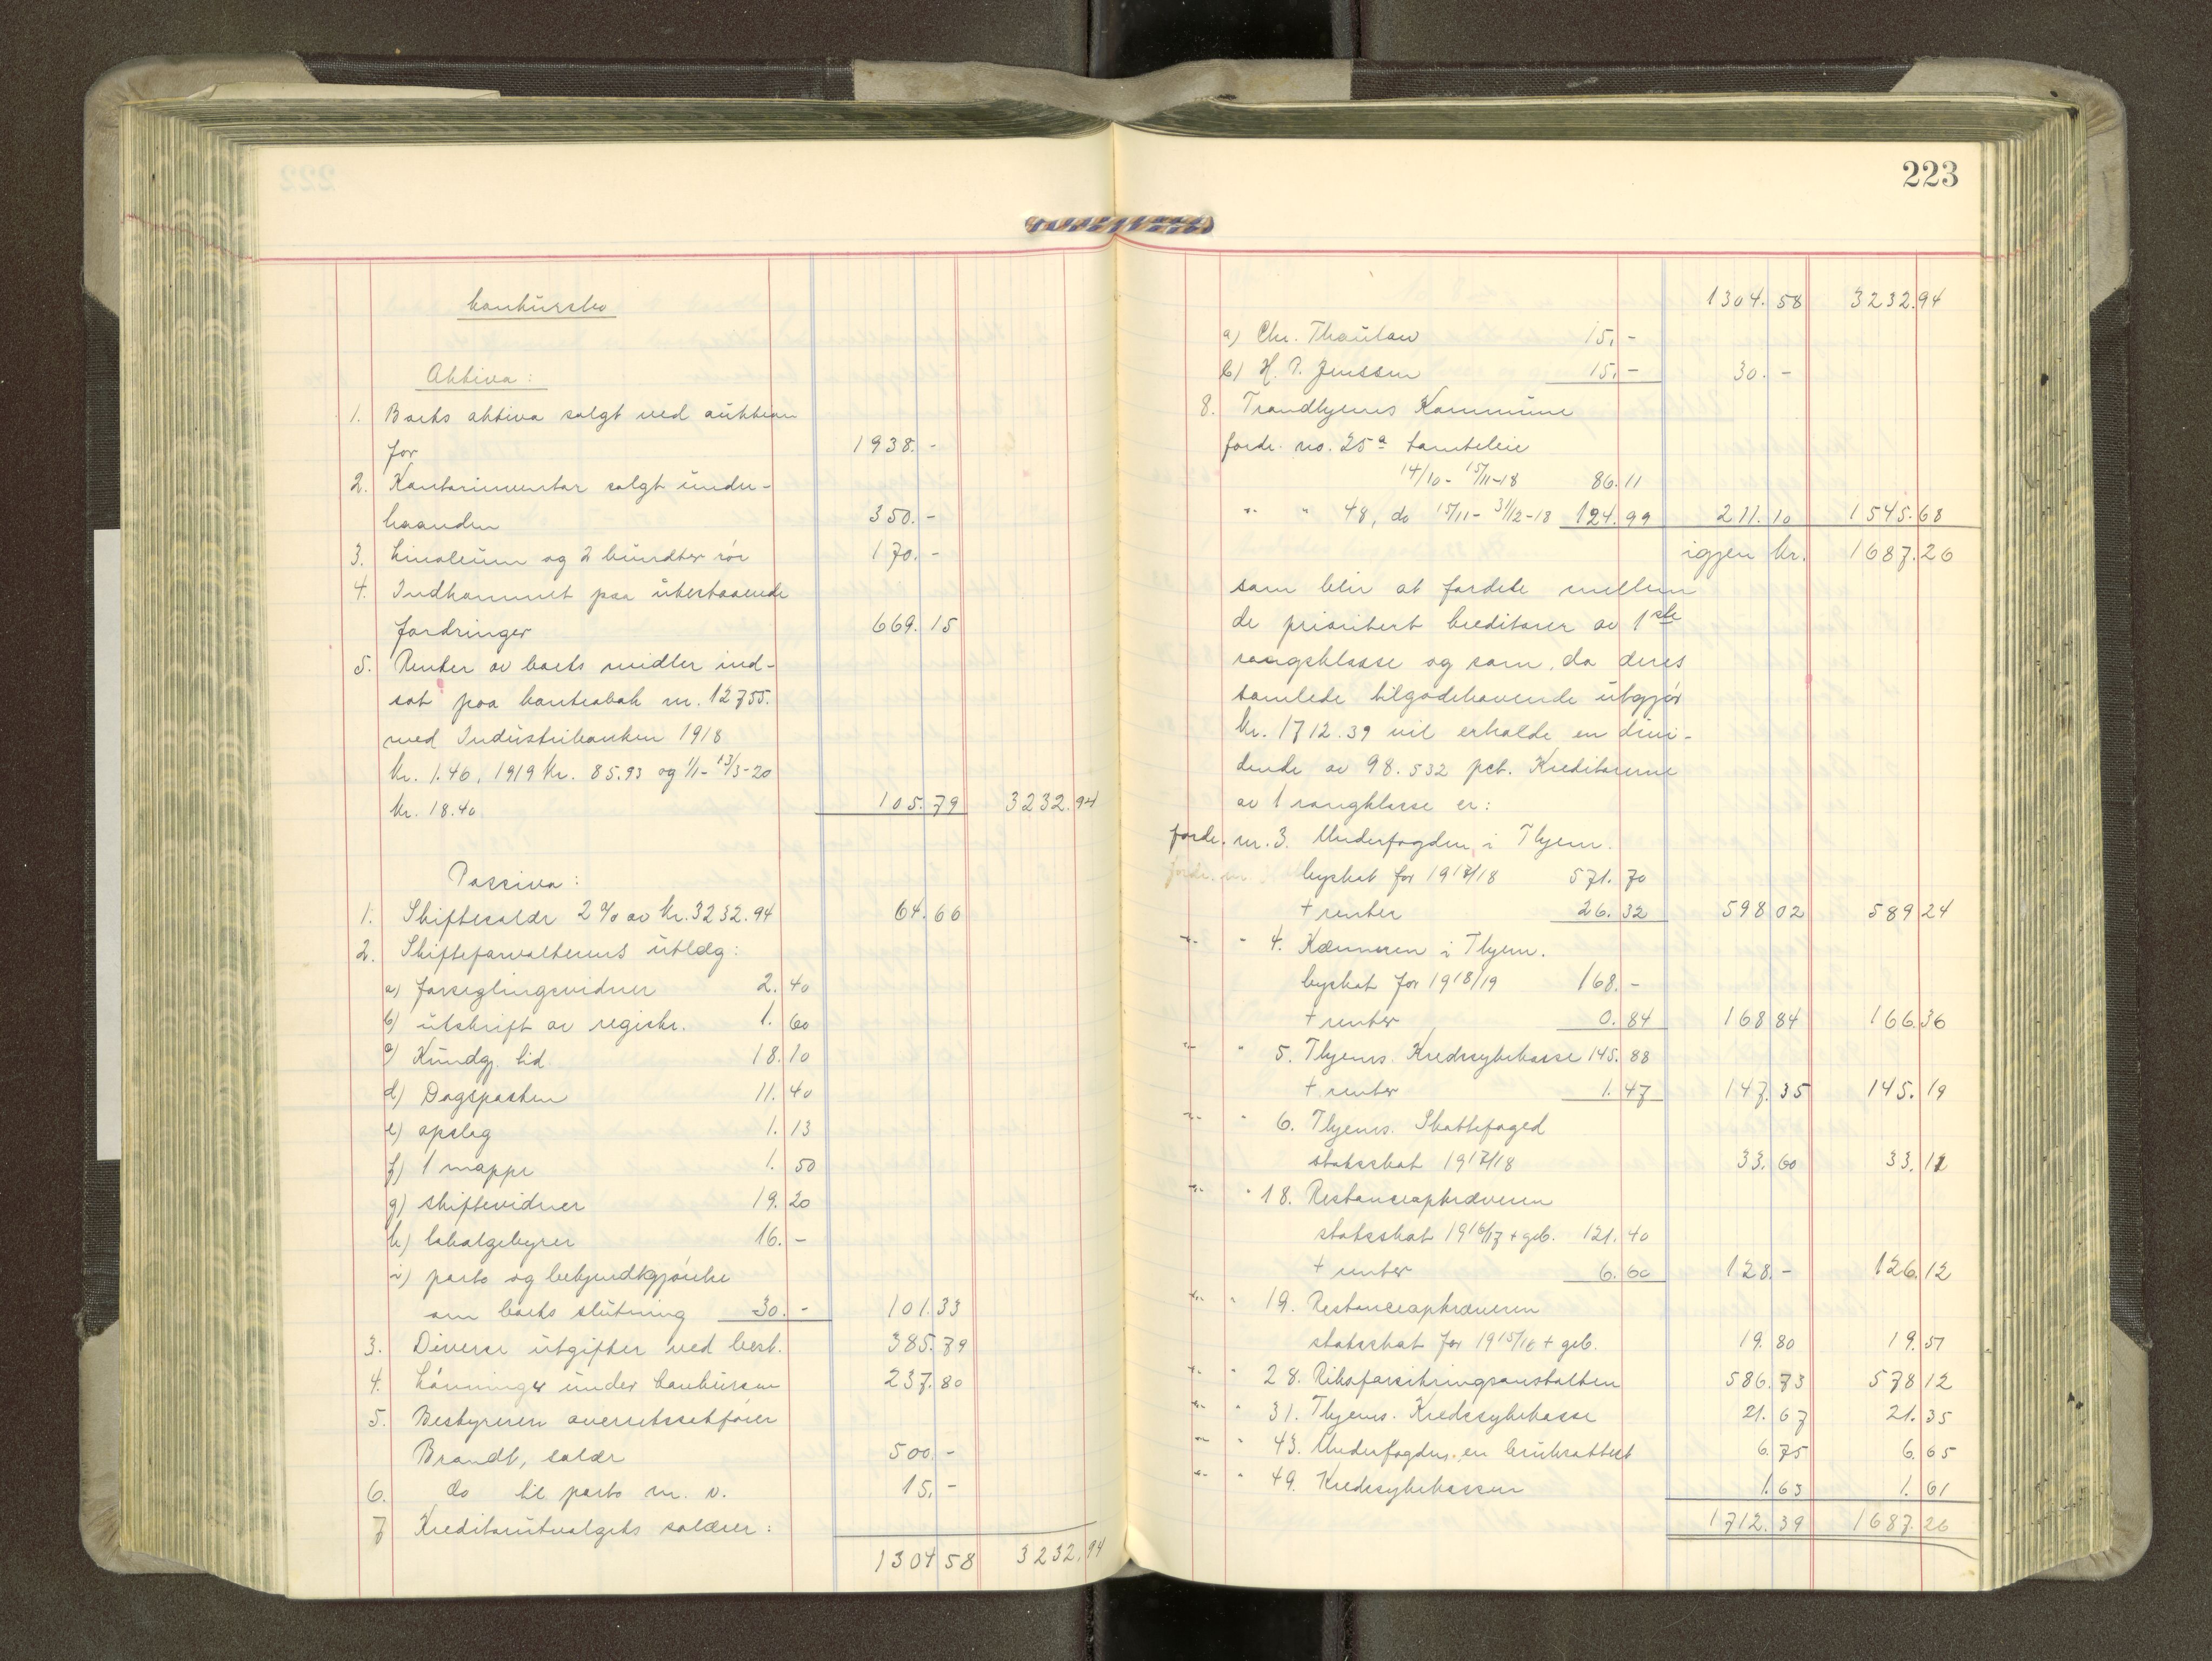 konkursbo
Aktiva:
1. Boets aktiva solgt ved auktion
for 1938.-
2. Kontorinventar solgt under-
haanden 350.-
3. Linoleum og 2 bundter rör 170.-
4. Indkommet paa utestaaende
fordringer 669.15
5. Renter av boets midler ind-
sat paa kontrabok nr. 12755.
med Industribanken 1918
kr. 1.46, 1919 kr. 85.93 og 1/1-13/3-20
kr. 18.40 105.79 3232.94
Passiva:
1. Skiftesalær 2% av kr. 3232.94 64.66
2. Skifteforvalterens utlæg:
a) forseglingsvidner 2.40
b) utskrift av registr. 1.60
c) Kundgj. tid 18.10
d) Dagsposten 11.40
e) opslag 1.13
f) 1 mappe 1.50
g) skiftevidner 19.20
h) lokalgebyrer 16.-
i) porto og bekjendtgjörelse
om boets slutning 30.- 101.33
3. Diverse utgifter ved best. 385.79
4. Lönninger under konkursen 237.80
5. Bestyreren overretssakförer
Brandt, salær 500.-
6. do til porto m. v. 15.-
7 Kreditorutvalgets salærer:
1304 58 3232.94
223
1304.58 3232.94
a) Chr. Thaulow 15.-
b) H. P. Jenssen 15.- 30.-
8. Trondhjems Kommune
fordr. no. 25a tomteleie
14/10-15/11-18 86.11
" " 48, do 15/11-31/12-18 124.99 211.10 1545.68
igjen kr. 1687.26
som blir at fordele mellem
de prioritert kreditorer av 1ste
rangsklasse og som, da deres
samlede tilgodehavende utgjör
kr. 1712.39 vil erholde en divi-
dende av 98.532 pct. Kreditorerne
av 1 rangklasse er:
fordr. nr. 3. Underfogden i Thjem.
byskat for 1917/18 571.70
+ renter 26.32 598 02 589 24
" " 4. Kæmneren i Thjem.
byskat for 1918/19 168.-
+ renter 0.84 168 84 166.36
" " 5. Thjems. Kredssykekasse 145.88
+ renter 1.47 147.35 145.19
" " 6. Thjems. Skattefoged
statsskat 1917/18 33.60 33.11
" " 18. Restanceopkræveren
statsskat 1916/17 + geb. 121.40
+ renter 6.60 128.- 126.12
" " 19. Restanceopkræveren
statsskat for 1915/16 + geb. 19.80 19.51
" " 28. Riksforsikringsanstalten 586.73 578 12
" " 31. Thjems. Kredssykekasse 21.67 21.35
" " 43. Underfogden, en bruksattest 6.75 6.65
" " 49. Kredssykekassen 1.63 1.61
1712.39 1687.26